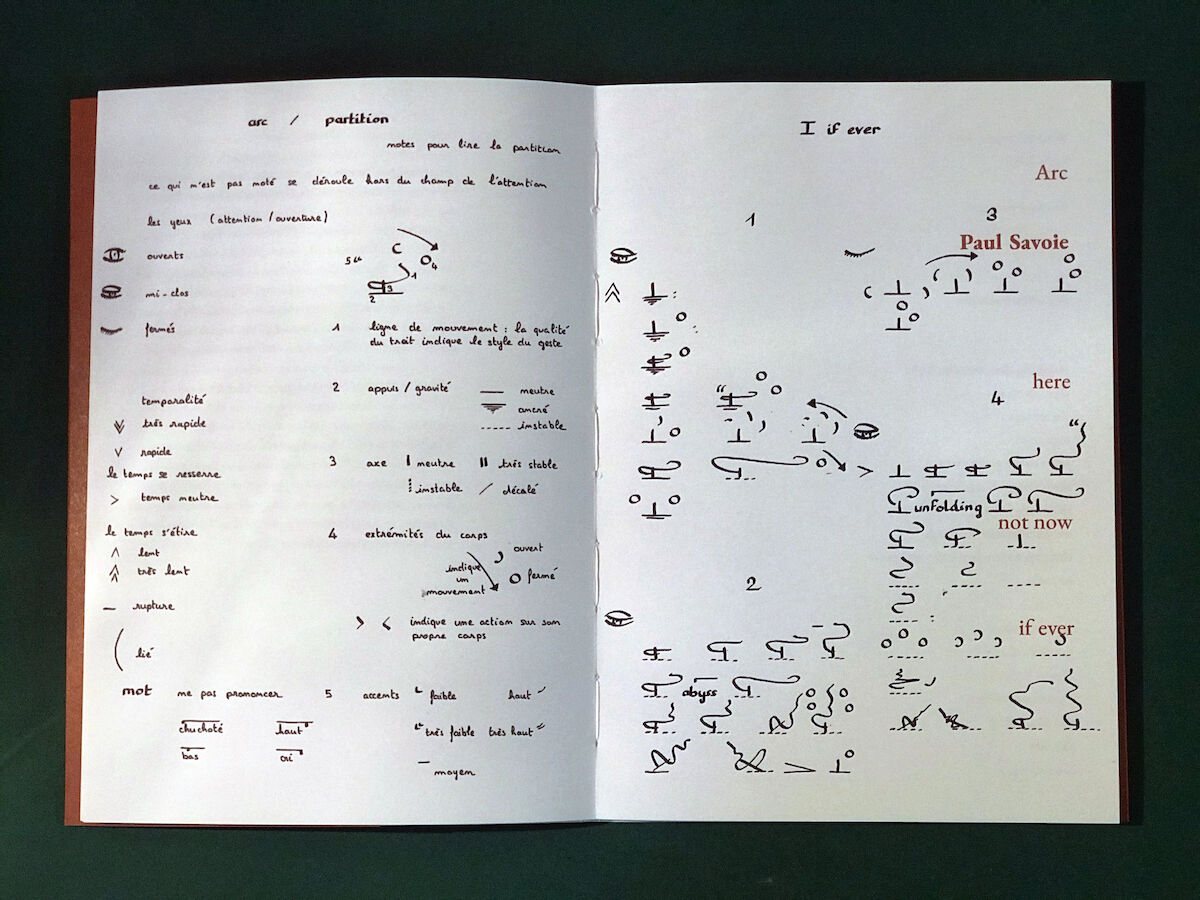 arc / partition
notes pour lire la partition
ce qui n'est pas noté se déroule hors du champ de l'attention
les yeux (attention / ouverture)
ouverts
mi-clos
fermés
5 "
1
4
3
2
temporalité
très rapide
rapide
le temps se resserre
temps neutre
le temps s'étire
lent
très lent
rupture
lié
mot ne pas prononcer
chuchoté haut
bas cri
1 ligne de mouvement : la qualité
du trait indique le style du geste
2 appuis / gravité
neutre
ancré
instable
3 axe neutre très stable
instable décalé
4 extrémités du corps
ouvert
fermé
indique
un
mouvement
indique une action sur son
propre corps
5 accents faible haut
très faible très haut
moyen
I if ever
Arc
1
3
Paul Savoie
here
4
unfolding
not now
2
if ever
abyss